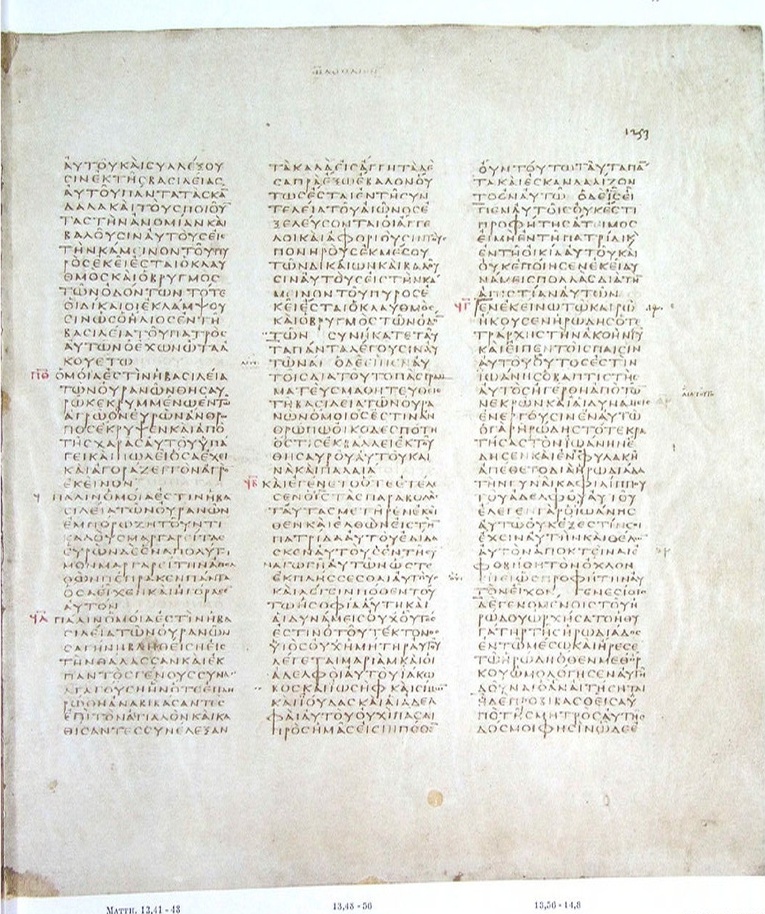 1253
ΑΥΤΟΥΚΑΙϹΥΛΛΕΞΟΥ
ϹΙΝΕΚΤΗϹΒΑϹΙΛΕΙΑϹ
ΑΥΤΟΥΠΑΝΤΑΤΑϹΚΑ̅
ΔΑΛΑΚΑΙΤΟΥϹΠΟΙΟΥ̅
ΤΑϹΤΗΝΑΝΟΜΙΑΝΚΑΙ
ΒΑΛΟΥϹΙΝΑΥΤΟΥϹΕΙϹ
ΤΗΝΚΑΜΕΙΝΟΝΤΟΥΠΥ
ΡΟϹΕΚΕΙΕϹΤΑΙΟΚΛΑΥ
ΘΜΟϹΚΑΙΟΒΡΥΓΜΟϹ
ΤΩΝΟΔΟΝΤΩΝΤΟΤΕ
ΟΙΔΙΚΑΙΟΙΕΚΛΑΜΨΟΥ
ϹΙΝΩϹΟΗΛΙΟϹΕΝΤΗ
ΒΑϹΙΛΕΙΑΤΟΥΠΑΤΡΟϹ
ΑΥΤΩΝΟΕΧΩΝΩΤΑΑ
ΚΟΥΕΤΩ
ΟΜΟΙΑΕϹΤΙΝΗΒΑϹΙΛΕΙΑ
ΤΩΝΟΥΡΑΝΩΝΘΗϹΑΥ
ΡΩΚΕΚΡΥΜΜΕΝΩΕΝΤΩ
ΑΓΡΩΟΝΕΥΡΩΝΑΝΘΡΩ
ΠΟϹΕΚΡΥΨΕΝΚΑΙΑΠΟ
ΤΗϹΧΑΡΑϹΑΥΤΟΥΥΠΑ
ΓΕΙΚΑΙΠΩΛΕΙΟϹΑΕΧΕΙ
ΚΑΙΑΓΟΡΑΖΕΙΤΟΝΑΓΡΟ̅
ΕΚΕΙΝΟΝ
ΠΑΛΙΝΟΜΟΙΑΕϹΤΙΝΗΒΑ
ϹΙΛΕΙΑΤΩΝΟΥΡΑΝΩΝ
ΕΜΠΟΡΩΖΗΤΟΥΝΤΙ
ΚΑΛΟΥϹΜΑΡΓΑΡΕΙΤΑϹ
ΕΥΡΩΝΔΕΕΝΑΠΟΛΥΤΙ
ΜΟΝΜΑΡΓΑΡΕΙΤΗΝΑΠΕΛ
ΘΩΝΠΕΠΡΑΚΕΝΠΑΝΤΑ
ΟϹΑΕΙΧΕΝΚΑΙΗΓΟΡΑϹΕ
ΑΥΤΟΝ
ΠΑΛΙΝΟΜΟΙΑΕϹΤΙΝΗΒΑ
ϹΙΛΕΙΑΤΩΝΟΥΡΑΝΩΝ
ϹΑΓΗΝΗΒΛΗΘΕΙϹΗΕΙϹ
ΤΗΝΘΑΛΑϹϹΑΝΚΑΙΕΚ
ΠΑΝΤΟϹΓΕΝΟΥϹϹΥΝΑ
ΓΑΓΟΥϹΗΗΝΟΤΕΕΠΛΗ
ΡΩΘΗΑΝΑΒΙΒΑϹΑΝΤΕϹ
ΕΠΙΤΟΝΑΙΓΙΑΛΟΝΚΑΙΚΑ
ΘΙϹΑΝΤΕϹϹΥΝΕΛΕΞΑΝ
ΤΑΚΑΛΑΕΙϹΑΓΓΗΤΑΔΕ
ϹΑΠΡΑΕΞΩΕΒΑΛΟΝΟΥ
ΤΩϹΕϹΤΑΙΕΝΤΗϹΥΝ
ΤΕΛΕΙΑΤΟΥΑΙΩΝΟϹΕ
ΞΕΛΕΥϹΟΝΤΑΙΟΙΑΓΓΕ
ΛΟΙΚΑΙΑΦΟΡΙΟΥϹΙΝΤΟΥϹ
ΠΟΝΗΡΟΥϹΕΚΜΕϹΟΥ
ΤΩΝΔΙΚΑΙΩΝΚΑΙΒΑΛΟΥ
ϹΙΝΑΥΤΟΥϹΕΙϹΤΗΝΚΑ
ΜΕΙΝΟΝΤΟΥΠΥΡΟϹΕ
ΚΕΙΕϹΤΑΙΟΚΛΑΥΘΜΟϹ
ΚΑΙΟΒΡΥΓΜΟϹΤΩΝΟΔΟ̅
ΤΩΝ ϹΥΝΗΚΑΤΕΤΑΥ
ΤΑΠΑΝΤΑΛΕΓΟΥϹΙΝΑΥ
ΤΩΝΑΙ ΟΔΕΕΙΠΕΝΑΥ
ΤΟΙϹΔΙΑΤΟΥΤΟΠΑϹΓΡΑΜ
ΜΑΤΕΥϹΜΑΘΗΤΕΥΘΕΙϹ
ΤΗΒΑϹΙΛΕΙΑΤΩΝΟΥΡΑ
ΝΩΝΟΜΟΙΟϹΕϹΤΙΝΑΝ
ΘΡΩΠΩΟΙΚΟΔΕϹΠΟΤΗ
ΟϹΤΙϹΕΚΒΑΛΛΕΙΕΚΤΟΥ
ΘΗϹΑΥΡΟΥΑΥΤΟΥΚΑΙ
ΝΑΚΑΙΠΑΛΑΙΑ
ΚΑΙΕΓΕΝΕΤΟΟΤΕΕΤΕΛΕ
ϹΕΝΟΙϹΤΑϹΠΑΡΑΒΟΛΑϹ
ΤΑΥΤΑϹΜΕΤΗΡΕΝΕΚΕΙ
ΘΕΝΚΑΙΕΛΘΩΝΕΙϹΤΗ̅
ΠΑΤΡΙΔΑΑΥΤΟΥΕΔΙΔΑ
ϹΚΕΝΑΥΤΟΥϹΕΝΤΗϹΥ
ΝΑΓΩΓΗΑΥΤΩΝΩϹΤΕ
ΕΚΠΛΗϹϹΕϹΘΑΙΑΥΤΟΥϹ
ΚΑΙΛΕΓΕΙΝΠΟΘΕΝΤΟΥ
ΤΩΗϹΟΦΙΑΑΥΤΗΚΑΙ
ΑΙΔΥΝΑΜΕΙϹΟΥΧΟΥΤΟϹ
ΕϹΤΙΝΟΤΟΥΤΕΚΤΟΝΟϹ
ΥΙΟϹΟΥΧΗΜΗΤΗΡΑΥΤΟΥ
ΛΕΓΕΤΑΙΜΑΡΙΑΜΚΑΙΟΙ
ΑΔΕΛΦΟΙΑΥΤΟΥΙΑΚΩ
ΒΟϹΚΑΙΙΩϹΗΦΚΑΙϹΙΜΩ̅
ΚΑΙΙΟΥΔΑϹΚΑΙΑΙΑΔΕΛ
ΦΑΙΑΥΤΟΥΟΥΧΙΠΑϹΑΙ
ΠΡΟϹΗΜΑϹΕΙϹΙΝΠΟΘΕ̅
ΟΥΝΤΟΥΤΩΤΑΥΤΑΠΑ̅
ΤΑΚΑΙΕϹΚΑΝΔΑΛΙΖΟΝ
ΤΟΕΝΑΥΤΩ ΟΔΕΙϹΕΙ
ΠΕΝΑΥΤΟΙϹΟΥΚΕϹΤΙ
ΠΡΟΦΗΤΗϹΑΤΕΙΜΟϹ
ΕΙΜΗΕΝΤΗΠΑΤΡΙΔΙΚΑΙ
ΕΝΤΗΟΙΚΙΑΑΥΤΟΥΚΑΙ
ΟΥΚΕΠΟΙΗϹΕΝΕΚΕΙΔΥ
ΝΑΜΕΙϹΠΟΛΛΑϹΔΙΑΤΗ̅
ΑΠΙϹΤΙΑΝΑΥΤΩΝ
ΕΝΕΚΕΙΝΩΤΩΚΑΙΡΩ
ΗΚΟΥϹΕΝΗΡΩΔΗϹΟΤΕ
ΤΡΑΡΧΗϹΤΗΝΑΚΟΗΝΙΥ
ΚΑΙΕΙΠΕΝΤΟΙϹΠΑΙϹΙΝ
ΑΥΤΟΥΟΥΤΟϹΕϹΤΙΝ
ΙΩΑΝΗϹΟΒΑΠΤΙϹΤΗϹ
ΑΥΤΟϹΗΓΕΡΘΗΑΠΟΤΩ̅
ΝΕΚΡΩΝΚΑΙΑΙΔΥΝΑΜΕΙϹ
ΕΝΕΡΓΟΥϹΙΝΕΝΑΥΤΩ
ΟΓΑΡΗΡΩΔΗϹΤΟΤΕΚΡΑ
ΤΗϹΑϹΤΟΝΙΩΑΝΗΝΕ
ΔΗϹΕΝΚΑΙΕΝΦΥΛΑΚΗ
ΑΠΕΘΕΤΟΔΙΑΗΡΩΔΙΑΔΑ
ΤΗΝΓΥΝΑΙΚΑΦΙΛΙΠΠΟΥ
ΤΟΥΑΔΕΛΦΟΥΑΥΤΟΥ
ΕΛΕΓΕΝΓΑΡΟΙΩΑΝΗϹ
ΑΥΤΩΟΥΚΕΞΕϹΤΙΝϹΟΙ
ΕΧΕΙΝΑΥΤΗΝΚΑΙΘΕΛΩ̅
ΑΥΤΟΝΑΠΟΚΤΕΙΝΑΙΕ
ΦΟΒΗΘΗΤΟΝΟΧΛΟΝ
ΕΠΕΙΩϹΠΡΟΦΗΤΗΝΑΥ
ΤΟΝΕΙΧΟΝ ΓΕΝΕϹΙΟΙϹ
ΔΕΓΕΝΟΜΕΝΟΙϹΤΟΥΗ
ΡΩΔΟΥΩΡΧΗϹΑΤΟΗΘΥ
ΓΑΤΗΡΤΗϹΗΡΩΔΙΑΔΟϹ
ΕΝΤΩΜΕϹΩΚΑΙΗΡΕϹΕ
ΤΩΗΡΩΔΗΟΘΕΝΜΕΘΟΡ
ΚΟΥΩΜΟΛΟΓΗϹΕΝΑΥΤΗ
ΔΟΥΝΑΙΟΑΝΑΙΤΗϹΗΤΑΙ
ΗΔΕΠΡΟΒΙΒΑϹΘΕΙϹΑΥ
ΠΟΤΗϹΜΗΤΡΟϹΑΥΤΗϹ
ΔΟϹΜΟΙΦΗϹΙΝΩΔΕΕ
MATTH. 13,41 - 48
13,48 - 56
13,56 - 14,8